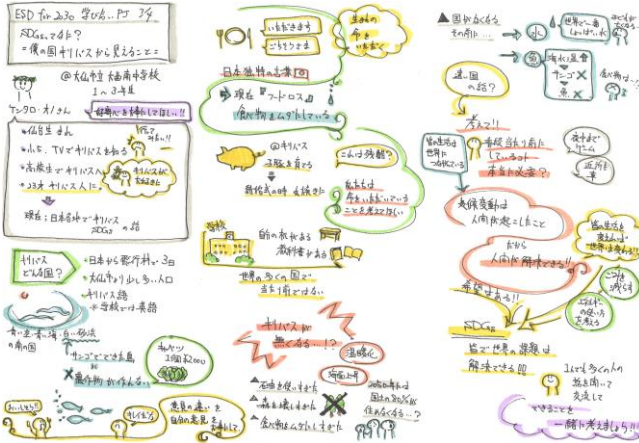 ESD for 2030 学び方.. PJ 3/4
SDGsってなに?
=僕の国キリバスから見えること=
@大仙市立大曲南中学校
1〜3年生
ケンタロ・オノさん
好奇心を大事にしてほしい!!
・仙台生まれ
・小5、TVでキリバスを知る
行って
みたい!!
・高校生でキリバスへ
キリバスが
大好きだ
・23才キリバス人に
現在:日本各地でキリバス
SDGsの話
キリバス
どんな国?
・日本から飛行機で3日
・大仙市より少し多い人口
・キリバス語
※学校では英語
青い空・青い海・白い砂浜
の南の国
サンゴでできた島
農作物が作れない
キャベツ
1個¥2000
おいしそう!!
キレイだな
意見の違いを
自分の意見を
いただきます
ごちそうさま
生きもの
の命を
いただく
日本独特の言葉
現在『フードロス』
食べ物をムダにしている
@キリバス
子豚を育てる
これは残酷?
私たちは
命をいただいている
ことを考えてほしい
学校
自分の机がある
教科書がある
世界の多くの国で
当り前ではない
キリバスが
無くなる…!?
温暖化
海面上昇
▲石油を使いすぎた
▲森を壊しすぎた
▲食べ物をムダにしすぎた
住めなくなる…?
▲国がなくなる
その前に…
水
世界で一番
しょっぱい水
魚
海水温度
サンゴ×
魚×
食べ物が…!!
遠い国
の話?
考えて!!
皆の生活は
世界に
つながっている
普段当たり前に
しているコト
本当に必要?
夜中まで
ゲーム
近所を
車
気候変動は
人間が起こしたこと
だから
人間が解決できる!!
皆の生活を
変えれば
世界は変わる!!
ごみを
減らす
エネルギー
の使い方
を考える
希望はある!!
SDGs
皆で世界の課題は
解決できる!!!
1人でも多くの人の
話を聞いて
交流して
できることを
一緒に考えましょう!!